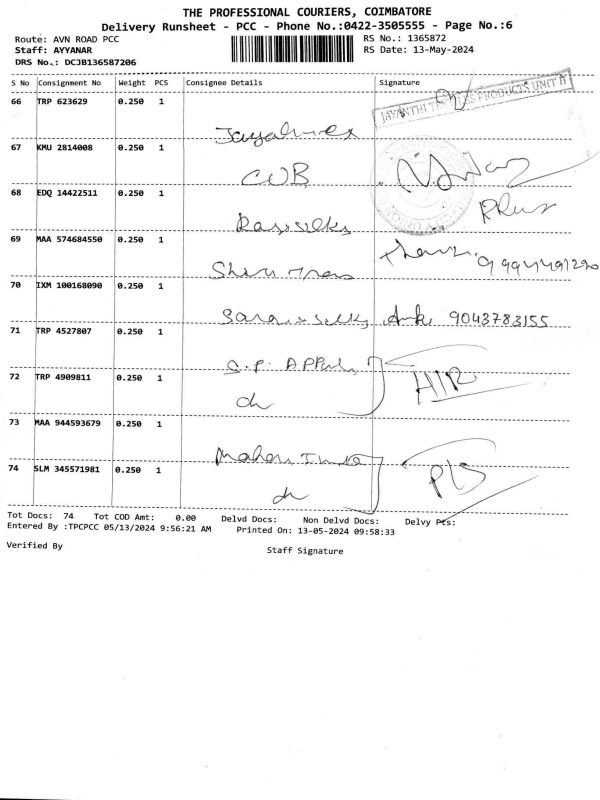 THE PROFESSIONAL COURIERS, COIMBATORE
Delivery Runsheet - PCC - Phone No.:0422-3505555 - Page No.:6
Route: AVN ROAD PCC
RS No.: 1365872
Staff: AYYANAR
RS Date: 13-May-2024
DRS No.: DCJB136587206
S No Consignment No Weight PCS Consignee Details Signature
66 TRP 623629 0.250 1
JAYANTHI PRODUCTS UNIT II
67 KMU 2814008 0.250 1
CUB
68 EDQ 14422511 0.250 1
69 MAA 574684550 0.250 1
70 IXM 100168090 0.250 1
9043783155
71 TRP 4527807 0.250 1
72 TRP 4909811 0.250 1
73 MAA 944593679 0.250 1
74 SLM 345571981 0.250 1
Tot Docs: 74 Tot COD Amt: 0.00 Delvd Docs: Non Delvd Docs: Delvy Pts:
Entered By :TPCPCC 05/13/2024 9:56:21 AM Printed On: 13-05-2024 09:58:33
Verified By
Staff Signature